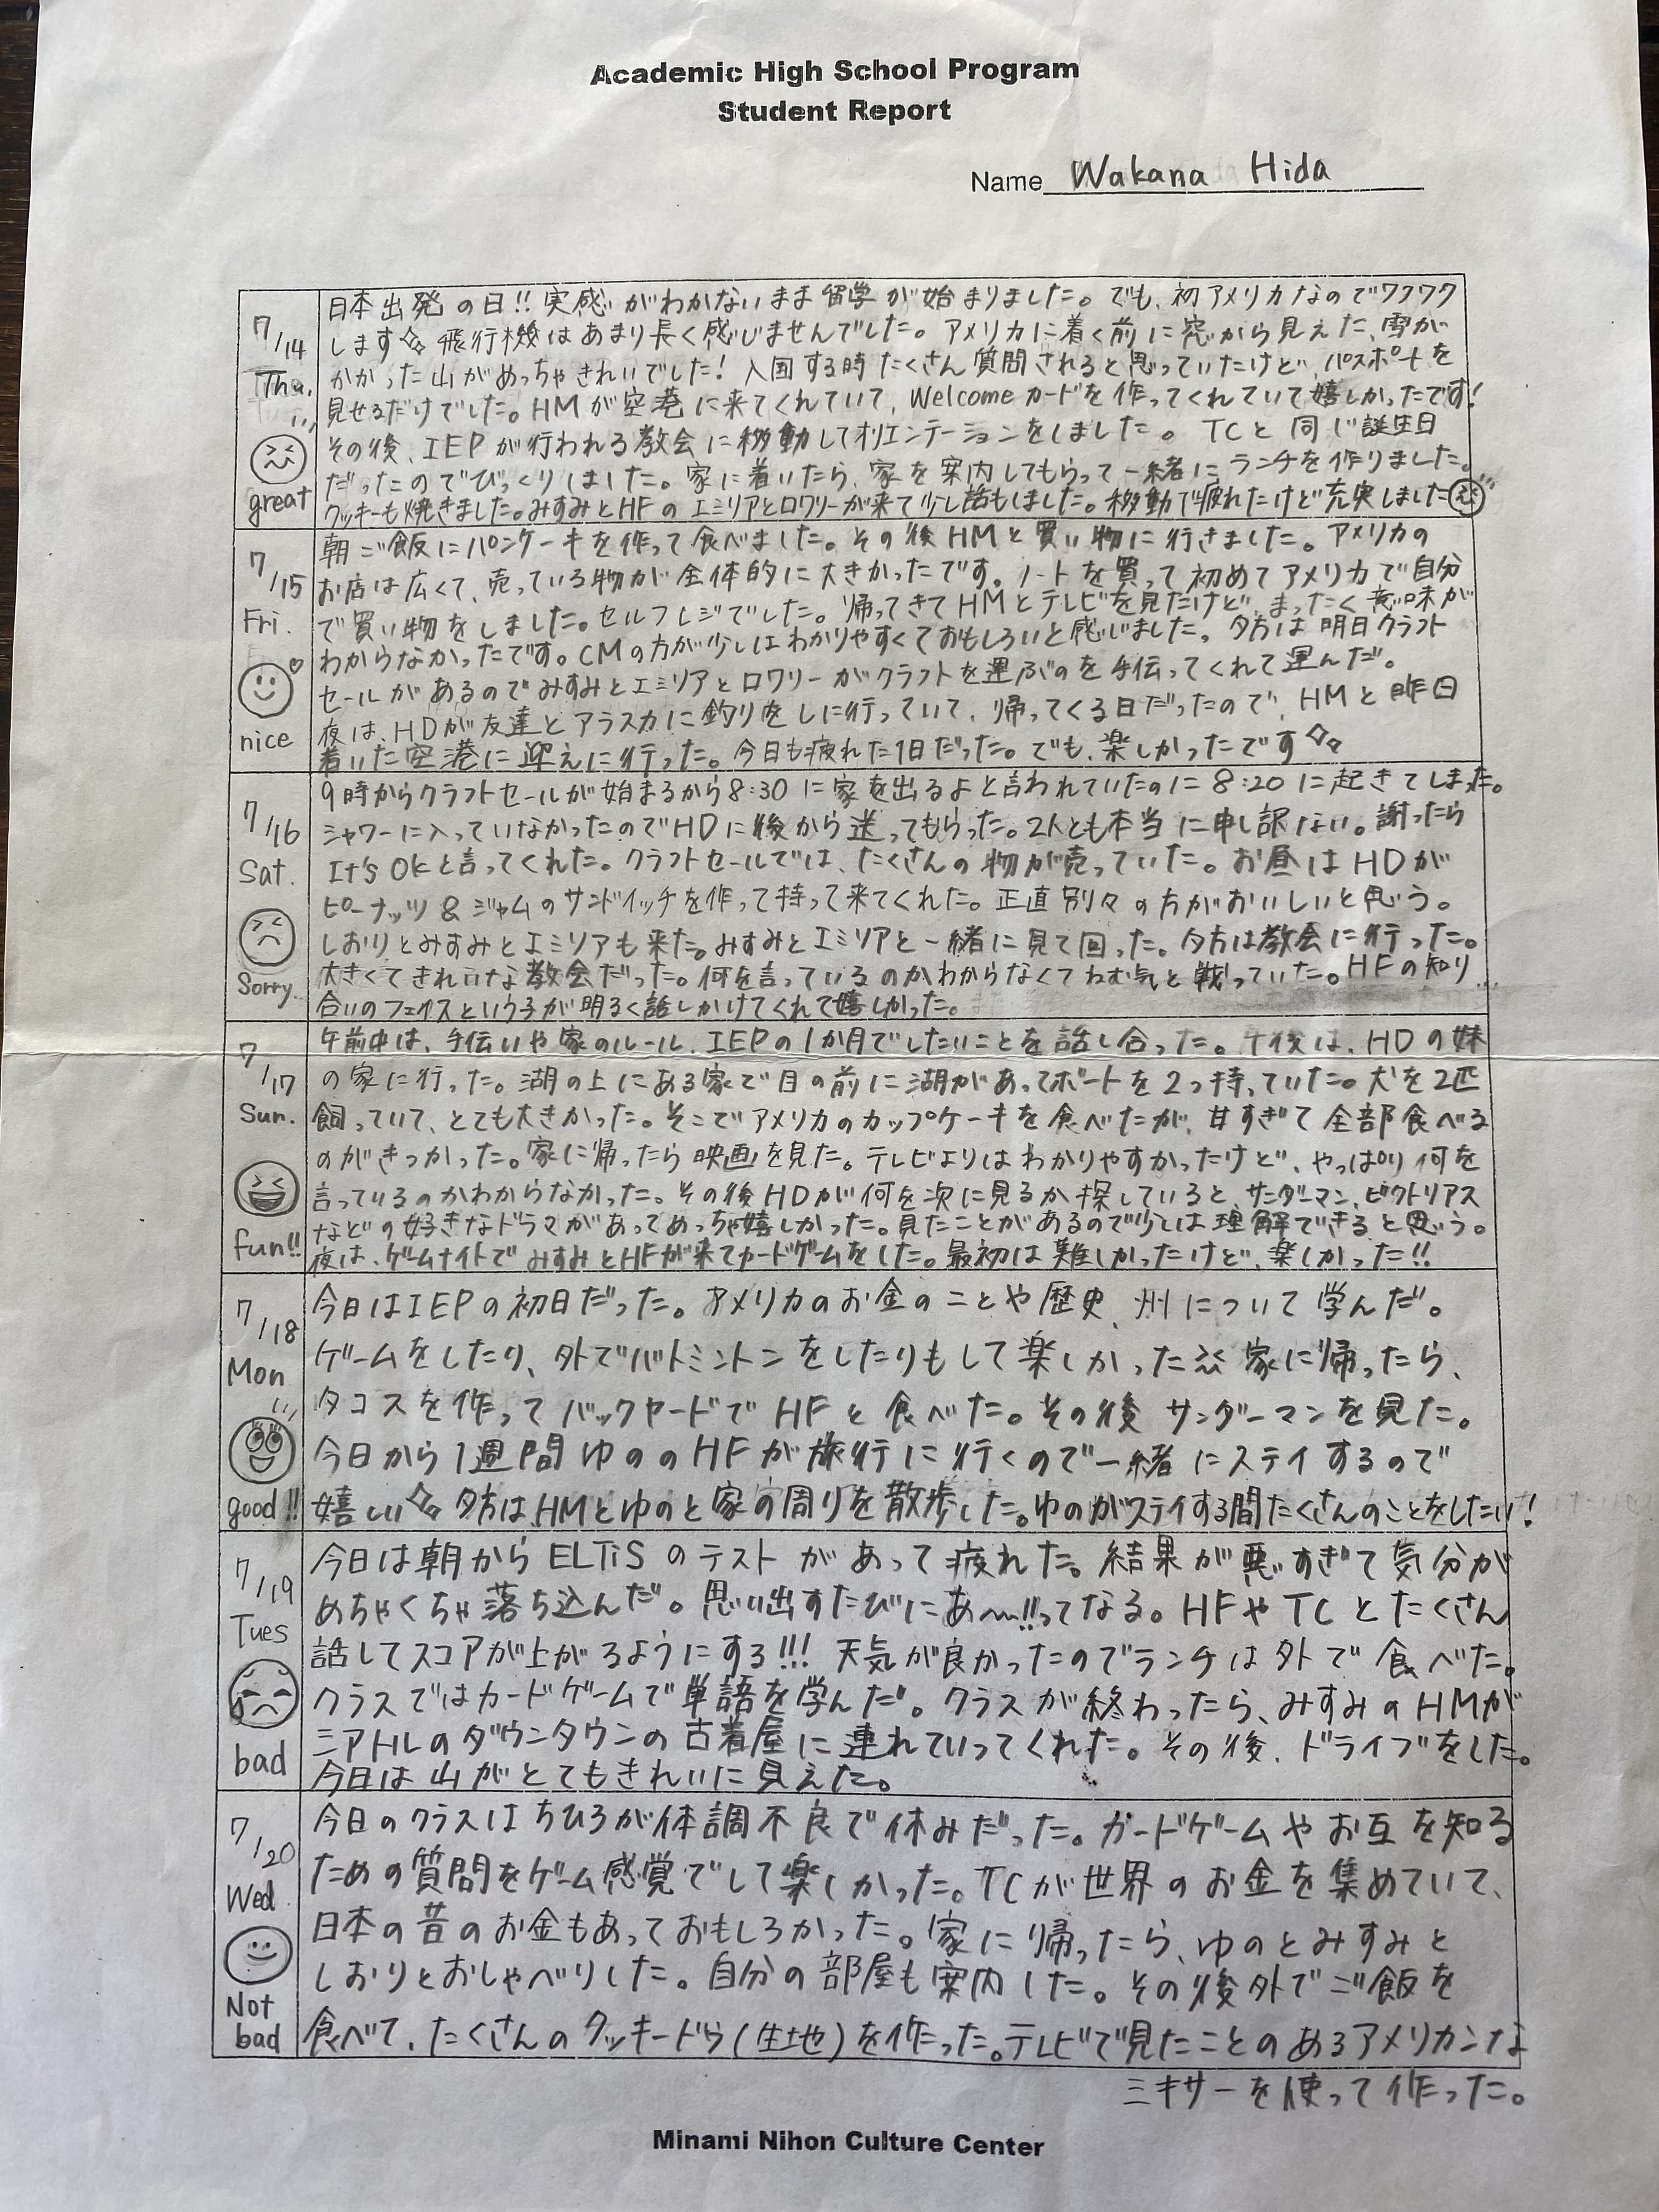 Academic High School Program
Student Report
Name Wakana Hida
7/14
Thu.
great
日本出発の日!! 実感がわかないまま留学が始まりました。でも、初アメリカなのでワクワク
します 飛行機はあまり長く感じませんでした。アメリカに着く前に窓から見えた、雪が
かかった山がめっちゃきれいでした! 入国する時たくさん質問されると思っていたけど、パスポートを
見せるだけでした。HMが空港に来てくれていて、Welcomeカードを作ってくれていて嬉しかったです!
その後、IEPが行われる教会に移動してオリエンテーションをしました。TCと同じ誕生日
だったのでびっくりしました。家に着いたら、家を案内してもらって一緒にランチを作りました。
クッキーも焼きました。みすみとHFのエミリアとロワリーが来て少し話もしました。移動で疲れたけど充実しました
7/15
Fri.
nice
朝ご飯にパンケーキを作って食べました。その後HMと買い物に行きました。アメリカの
お店は広くて、売っている物が全体的に大きかったです。ノートを買って初めてアメリカで自分
で買い物をしました。セルフレジでした。帰ってきてHMとテレビを見たけど、まったく意味が
わからなかったです。CMの方が少しはわかりやすくておもしろいと感じました。夕方は明日クラフト
セールがあるのでみすみとエミリアとロワリーがクラフトを運ぶのを手伝ってくれて運んだ。
夜は、HDが友達とアラスカに釣りをしに行っていて、帰ってくる日だったので、HMと昨日
着いた空港に迎えに行った。今日も疲れた1日だった。でも、楽しかったです
7/16
Sat.
Sorry
9時からクラフトセールが始まるから8:30に家を出るよと言われていたのに8:20に起きてしまった。
シャワーに入っていなかったのでHDに後から送ってもらった。2人とも本当に申し訳ない。謝ったら
It's Okと言ってくれた。クラフトセールでは、たくさんの物が売っていた。お昼はHDが
ピーナッツ&ジャムのサンドイッチを作って持って来てくれた。正直別々の方がおいしいと思う。
しおりとみすみとエミリアも来た。みすみとエミリアと一緒に見て回った。夕方は教会に行った。
大きくてきれいな教会だった。何を言っているのかわからなくてねむ気と戦っていた。HFの知り
合いのという子が明るく話しかけてくれて嬉しかった。
7/17
Sun.
fun!!
午前中は、手伝いや家のルール、IEPの1か月でしたいことを話し合った。午後は、HDの妹
の家に行った。湖の上にある家で目の前に湖があってボートを2つ持っていた。犬を2匹
飼っていて、とても大きかった。そこでアメリカのカップケーキを食べたが、甘すぎて全部食べる
のがきつかった。家に帰ったら映画を見た。テレビよりはわかりやすかったけど、やっぱり何を
言っているのかわからなかった。その後HDが何を次に見るか探していると、サンダーマン、ビクトリアス
などの好きなドラマがあってめっちゃ嬉しかった。見たことがあるので少しは理解できると思う。
夜は、ゲームナイトでみすみとHFが来てカードゲームをした。最初は難しかったけど、楽しかった!!
7/18
Mon
good!!
今日はIEPの初日だった。アメリカのお金のことや歴史、州について学んだ。
ゲームをしたり、外でバトミントンをしたりもして楽しかった 家に帰ったら、
タコスを作ってバックヤードでHFと食べた。その後サンダーマンを見た。
今日から1週間ゆののHFが旅行に行くので一緒にステイするので
嬉しい 夕方は、HMとゆのと家の周りを散歩した。ゆのがステイする間たくさんのことをしたい!
7/19
Tues
bad
今日は朝からELTiSのテストがあって疲れた。結果が悪すぎて気分が
めちゃくちゃ落ち込んだ。思い出すたびにあ〜!!ってなる。HFやTCとたくさん
話してスコアが上がるようにする!!! 天気が良かったのでランチは外で食べた。
クラスではカードゲームで単語を学んだ。クラスが終わったら、みすみのHMが
シアトルのダウンタウンの古着屋に連れていってくれた。その後、ドライブをした。
今日は山がとてもきれいに見えた。
7/20
Wed
Not
bad
今日のクラスはちひろが体調不良で休みだった。カードゲームやお互を知る
ための質問をゲーム感覚でして楽しかった。TCが世界のお金を集めていて、
日本の昔のお金もあっておもしろかった。家に帰ったら、ゆのとみすみと
しおりとおしゃべりした。自分の部屋も案内した。その後外でご飯を
食べて、たくさんのクッキードウ(生地)を作った。テレビで見たことのあるアメリカンな
ミキサーを使って作った。
Minami Nihon Culture Center